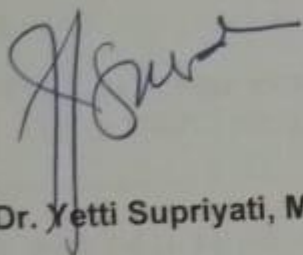 Dr. Yetti Supriyati, M